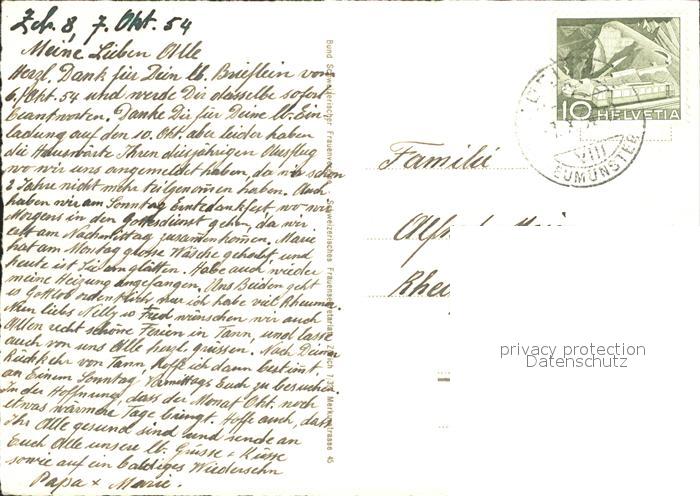 Zch. 8, 7. Okt. 54
Meine Lieben Alle
Herzl. Dank für Dein lb. Brieflein vom
6./Okt. 54 und werde Dir dasselbe sofort
beantworten. Danke Dir für Deine lb. Ein-
ladung auf den 10. Okt. aber leider haben
die Hauswärte Ihren diesjährigen Ausflug
wo wir uns angemeldet haben, da wir schon
2 Jahre nicht mehr teilgenommen haben. Auch
haben wir am Sonntag Erntedankfest wo wir
Morgens in den Gottesdienst gehen, da wir
erst am Nachmittag zusammenkommen. Marie
hat am Montag grosse Wäsche gehabt und
heute ist Sie am glätten. Habe auch wieder
meine Heizung angefangen. Uns Beiden geht
es Gottlob ordentlich, nur ich habe viel Rheuma.
Nun liebs Nelly u Fred wünschen wir auch
Allen recht schöne Ferien in Tann, und lasse
auch von uns Alle herzl. grüssen. Nach Deiner
Rückkehr von Tann hoffe ich dann bestimt
an Einem Sonntag Vormittags Euch zu besuchen.
In der Hoffnung, dass der Monat Okt. noch
etwas wärmere Tage bringt. Hoffe auch, dass
Ihr Alle gesund sind und sende an
Euch Alle unsere lb. Grüsse + Küsse
sowie auf ein baldiges Wiedersehn
Papa + Marie.
Bund Schweizerischer Frauenvereine, Schweizerisches Frauensekretariat, Zürich 7/32 Merkurstrasse 45
10 HELVETIA
VIII
EUMÜNSTER
Familie
Alfr
Rheu
privacy protection
Datenschutz